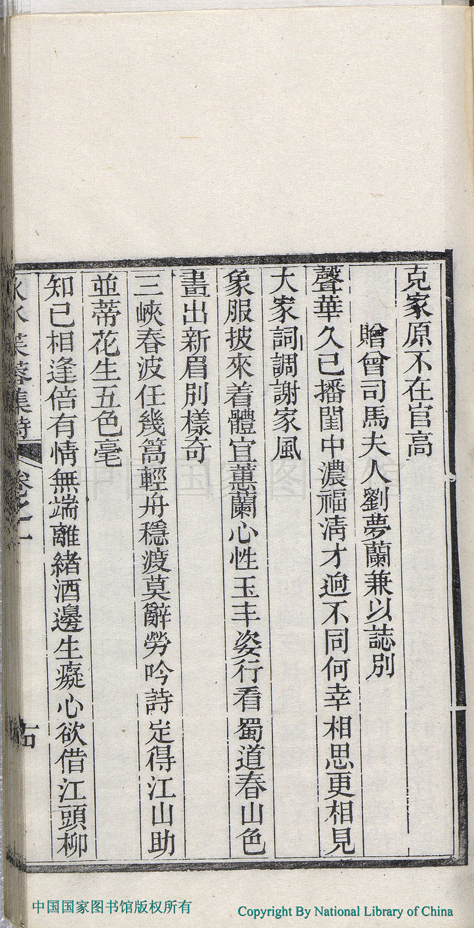 克家原不在官高
贈曾司馬夫人劉夢蘭兼以誌別
聲華久已播閨中濃福清才逈不同何幸相思更相見
大家詞調謝家風
象服披來着體宜蕙蘭心性玉丰姿行看蜀道春山色
畫出新眉別樣奇
三峽春波任幾篙輕舟穩渡莫辭勞吟詩定得江山助
並蒂花生五色毫
知已相逢倍有情無端離緒酒邊生癡心欲借江頭柳
芙蓉集詩
卷之
中国国家图书馆版权所有
Copyright By National Library of China